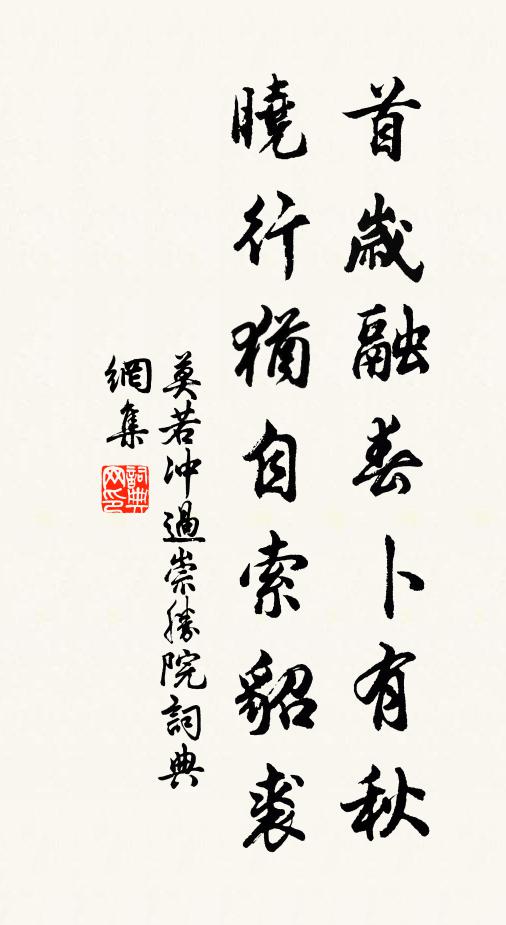 首歲融春卜有秋
曉行猶自索貂裘
莫若冲過崇勝院詞典
網集
詞典
网印